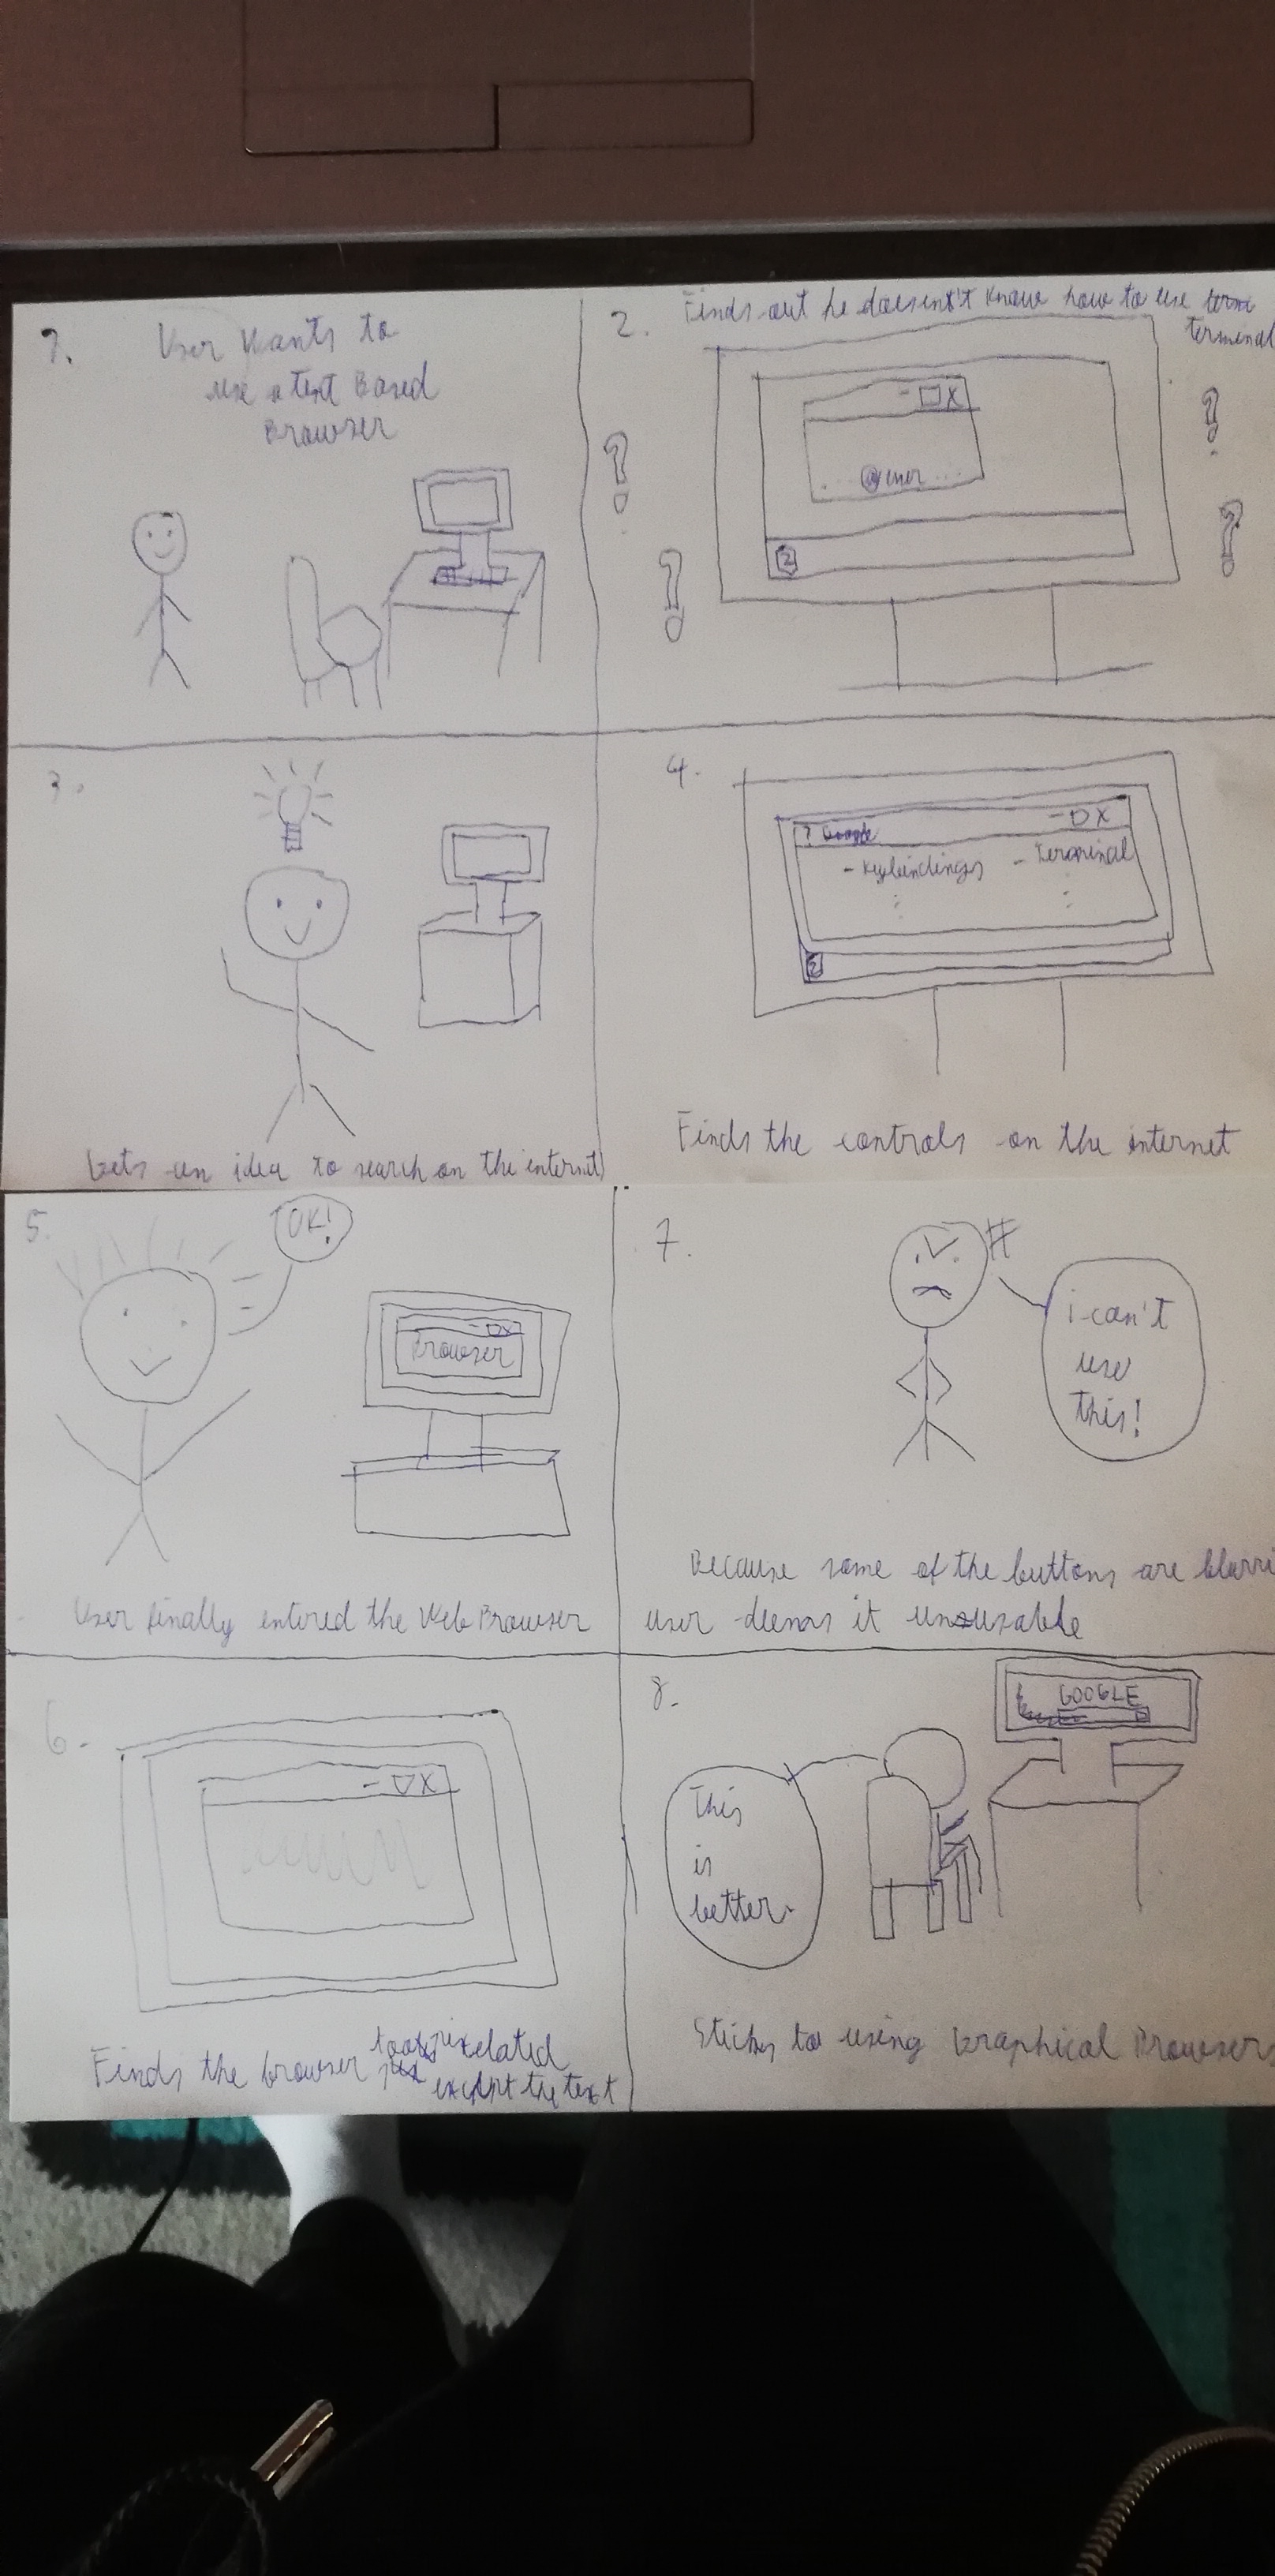 1.
User Wants to
use a text Based
Browser
2.
Finds out he doesn't know how to use
terminal
? ? ? ?
- □ X
@user ...
3.
Gets an idea to search on the internet
4.
? Google - □ X
- Keybindings - Terminal
Finds the controls on the internet
5.
OK!
- □ X
Browser
User finally entered the Web Browser
7.
#
i can't
use
this!
Because some of the buttons are blurri
user deems it unusable
6.
- □ X
Finds the browser too pixelated
except the text
8.
GOOGLE
This
is
better.
Sticks to using Graphical Browsers